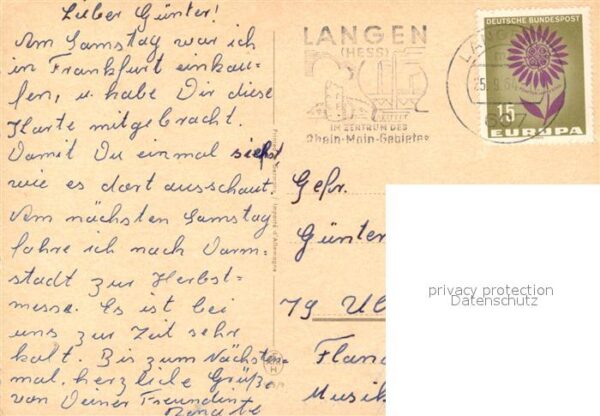 Lieber Günter!
Am Samstag war ich
in Frankfurt einkau-
fen, u. habe Dir diese
Karte mitgebracht.
Damit Du einmal siehst
wie es dort ausschaut.
Am nächsten Samstag
fahre ich nach Darm-
stadt zur Herbst-
messe. Es ist bei
uns zur Zeit sehr
kalt. Bis zum Nächsten-
mal, herzliche Grüße
von Deiner Freundin
Renate
LANGEN
(HESS)
IM ZENTRUM DES
Rhein-Main-Gebietes
LANG
25.9.64
607
DEUTSCHE BUNDESPOST
15
EUROPA
Gefr.
Günter
79 Ul
Flan
Musik
privacy protection
Datenschutz